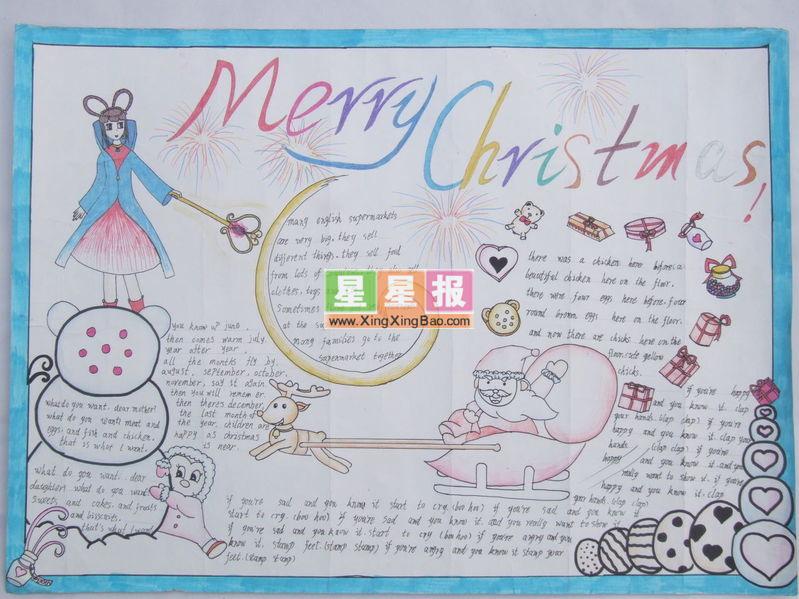 Merry Christmas!
many english supermarkets
are very big. they sell
different things. they sell food
from lots of
clothes, toys
Sometimes
at the
many families go to the
supermarket together
星星报
www.XingXingBao.com
there was a chicken here before. a
beautiful chicken here on the floor.
there were four eggs here before. four
round brown eggs here on the floor.
and now there are chicks here on the
floor. cute yellow
chicks.
you know up june
then comes warm july
year after year.
all the months fly by.
august, september, october,
november, say it again
then you will remember
then there's december
the last month of
the year. children are
happy as christmas
is near.
what do you want. dear mother?
what do you want? meat and
eggs. and fish and chicken.
that is what I want.
what do you want. dear
daughter? what do you want?
sweets and cakes. and fruits
and biscuits.
that's what I want
if you're happy
and you know it. clap
your hands. (clap clap) if you're
happy and you know it. clap your
hands. (clap clap) if you're
happy and you know it. and you
really want to show it. if you're
happy and you know it. clap
your hands. (clap clap)
if you're sad and you know it start to cry. (boo hoo) if you're sad and you know it
start to cry (boo hoo) if you're sad and you know it. and you really want to show it
if you're sad and you know it. start to cry (boo hoo) if you're angry and you
know it. stamp feet. (stamp stamp) if you're angry and you know it stamp your
feet. (stamp stamp)